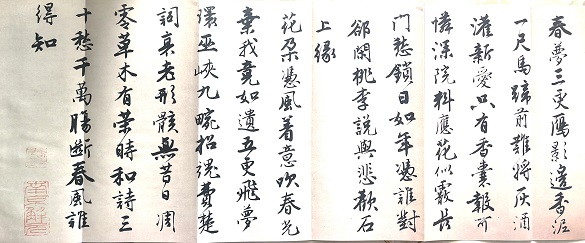 春夢三更鴈影邊香泥
一尺馬蹄前難將灰酒
灌新愛只有香囊報可
憐深院料應花似霰長
門愁鎖日如年憑誰對
卻閑桃李說與悲歡石
上緣
花朵憑風着意吹春光
棄我竟如遺五更飛夢
環巫峽九畹招魂費楚
詞衰老形骸無昔日凋
零草木有榮時和詩三
十愁千萬腸斷春風誰
得知